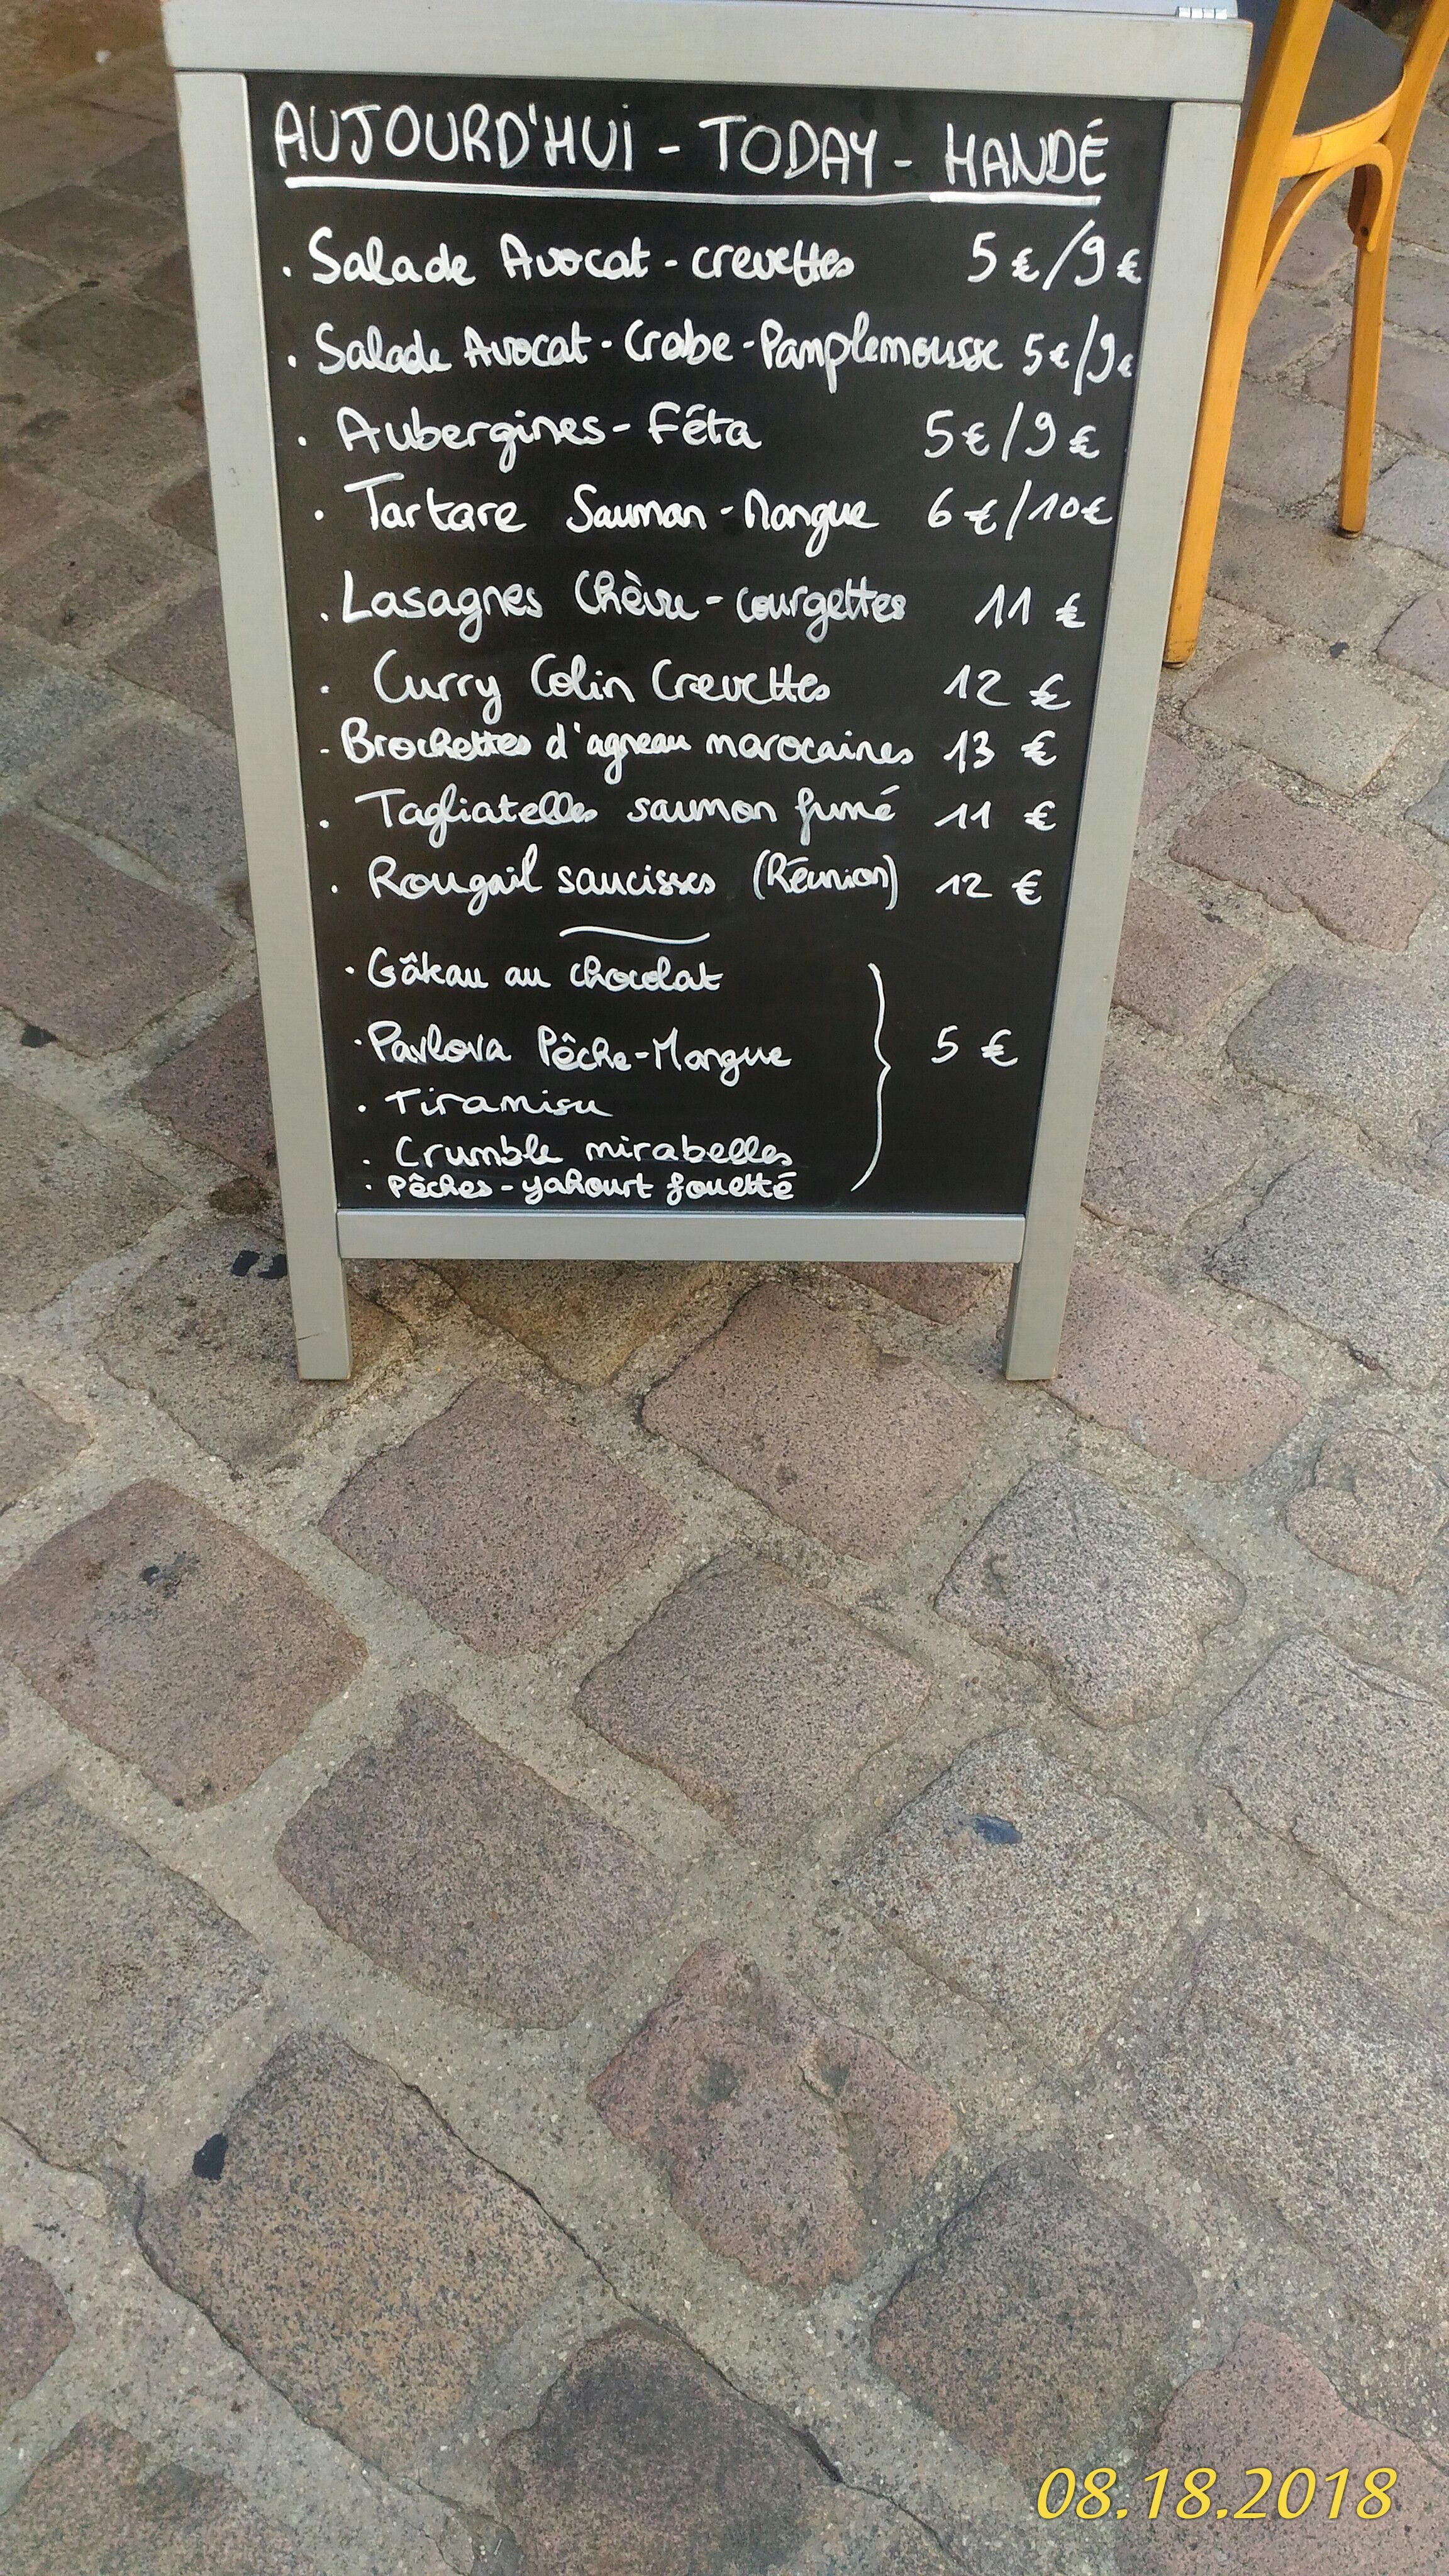 AUJOURD'HUI - TODAY - HANDÉ
. Salade Avocat - crevettes 5 €/9 €
. Salade Avocat - Crabe - Pamplemousse 5€/9€
. Aubergines - Féta 5€/9€
. Tartare Saumon - Mangue 6€/10€
. Lasagnes Chèvre - courgettes 11 €
. Curry Colin Crevettes 12 €
- Brochettes d'agneau marocaines 13 €
. Tagliatelles saumon fumé 11 €
. Rougail saucisses (Réunion) 12 €
. Gâteau au chocolat
. Pavlova Pêche-Mangue 5 €
. Tiramisu
. Crumble mirabelles
. Pêches - yahourt fouetté
08.18.2018